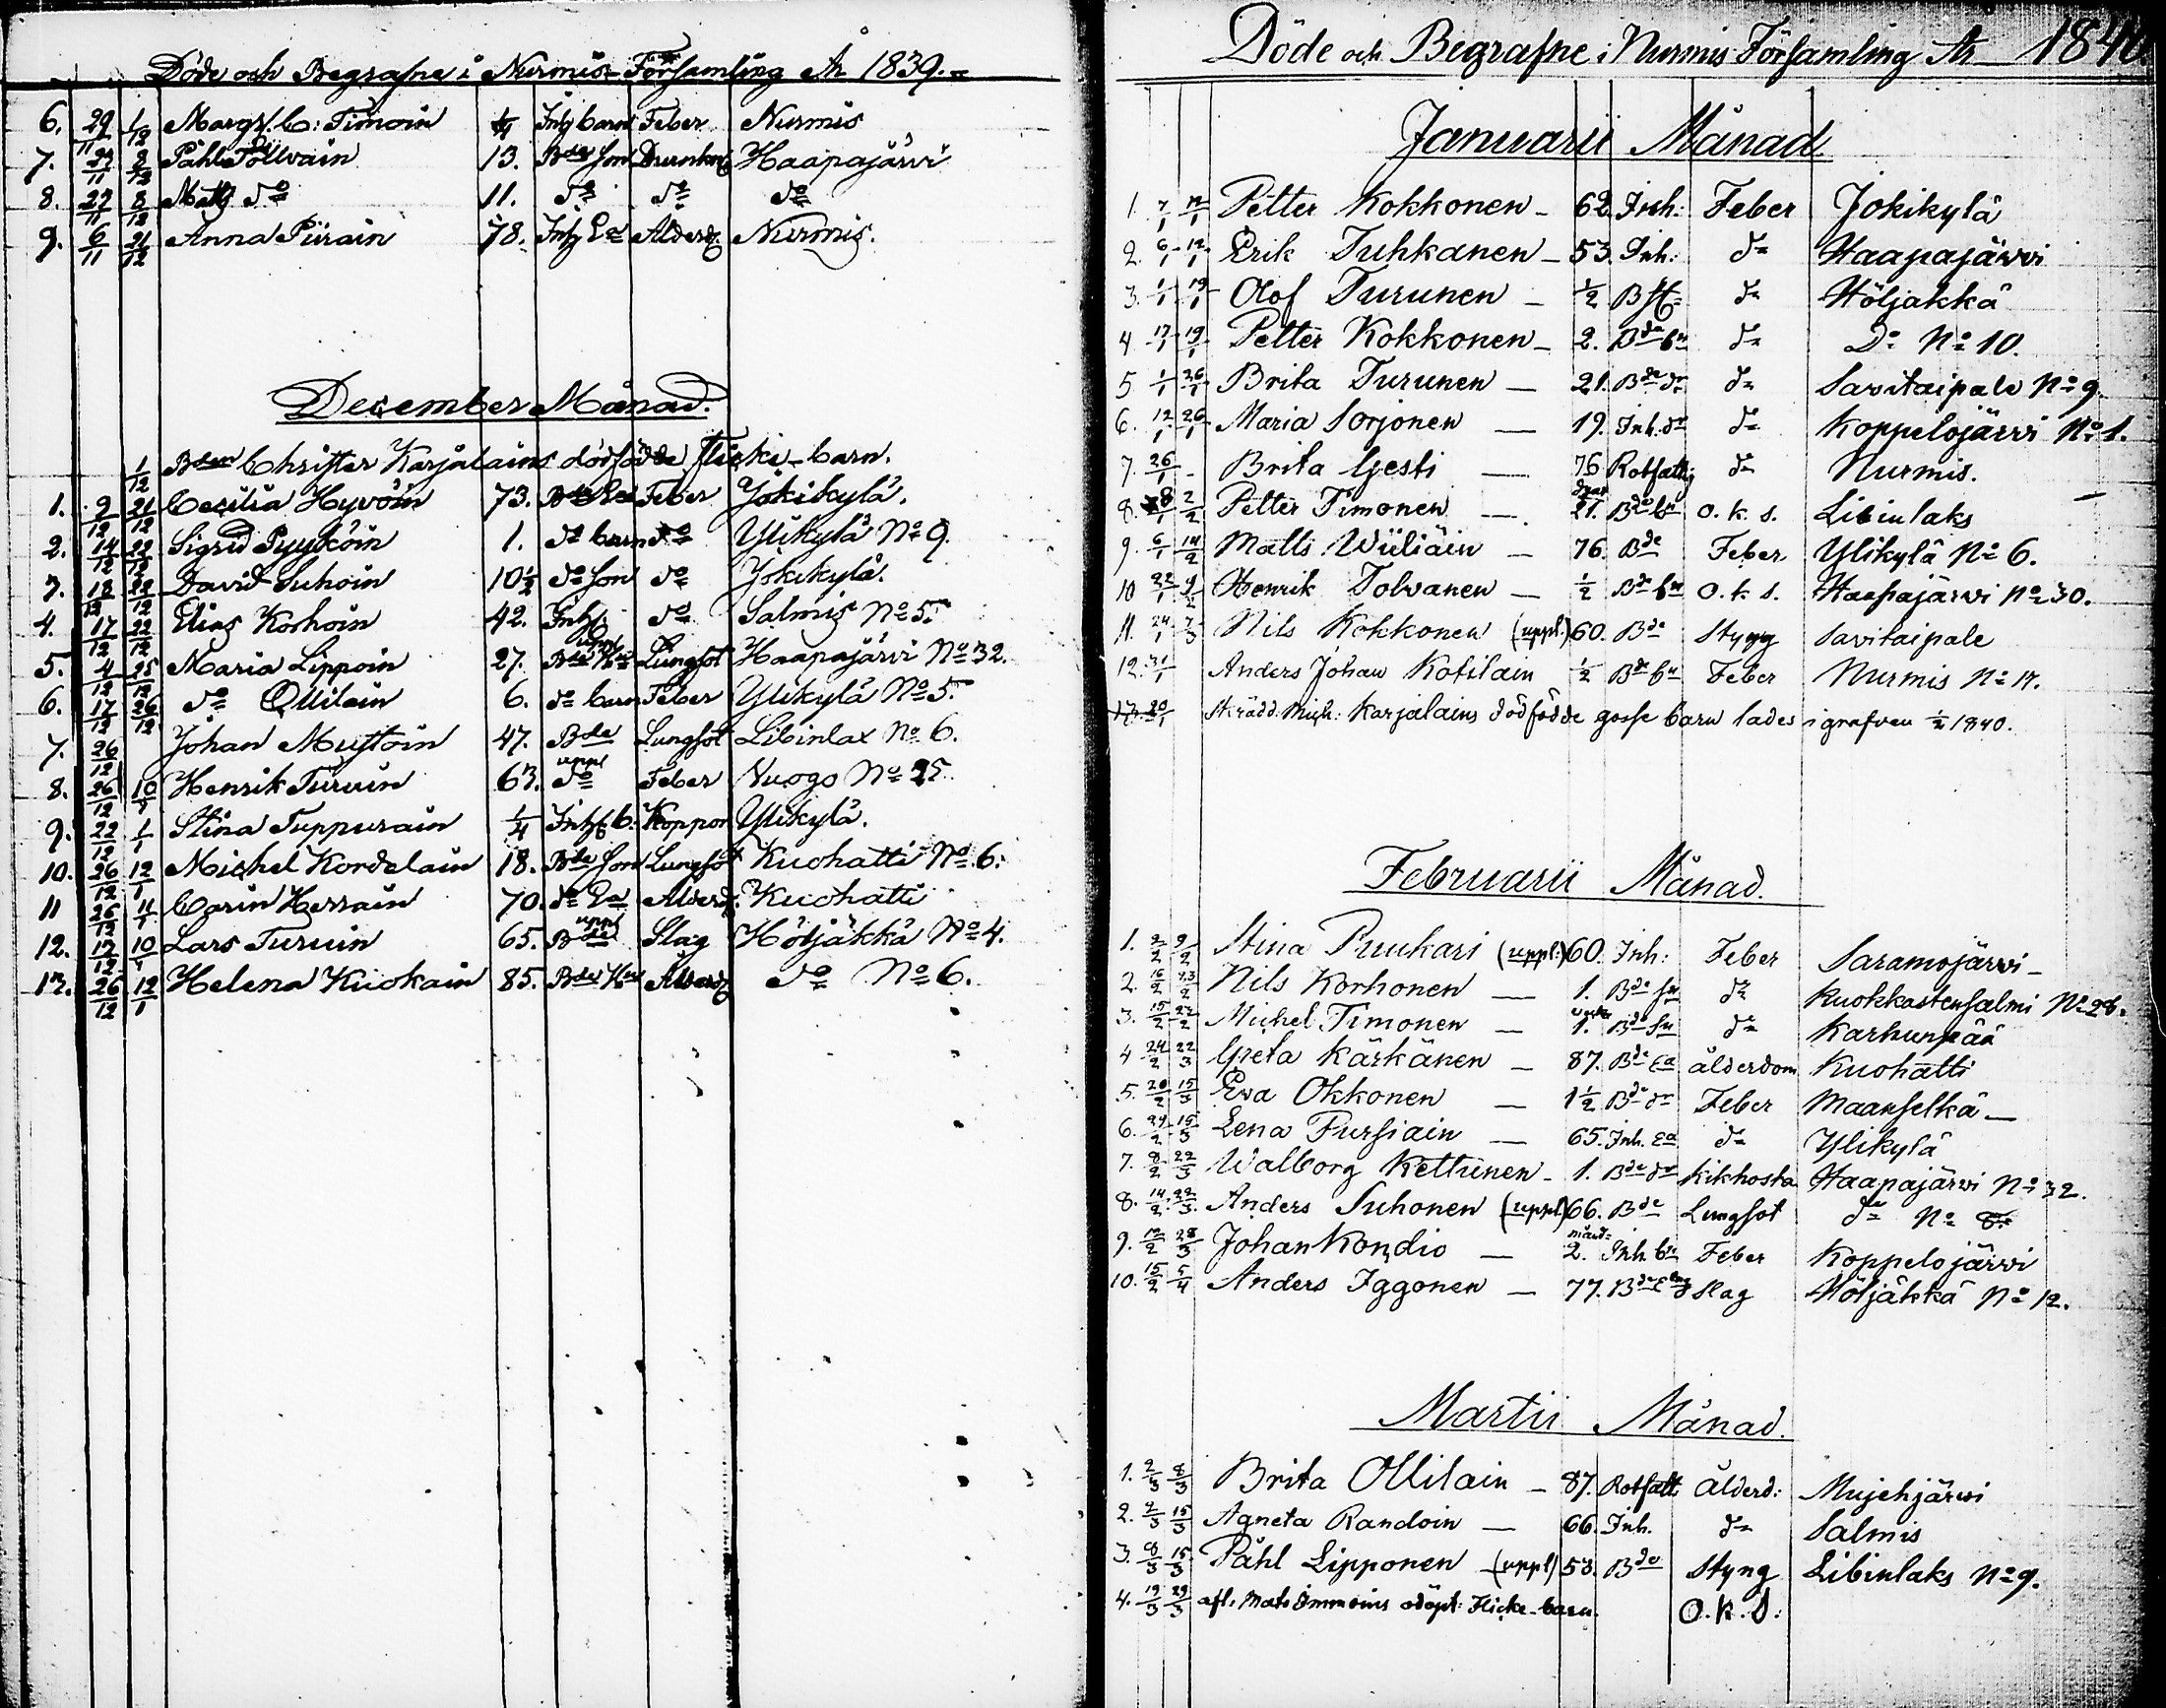 Döde och Begrafne i Nurmis Församling År 1839.
6. 29/11 1/12 Margr. C: Timoin 1/4 Inh barn Feber Nurmis
7. 27/11 8/12 Påhl Tolwain 13. Bde Son Drunkn Haapajärvi
8. 27/11 8/12 Matts do 11. do do do
9. 6/11 21/12 Anna Piirain 78. Inh Ea Alderd. Nurmis.
December Månad.
1/12 Bden Christer Karjalains dödfödde flicke-barn.
1. 9/12 21/12 Cecilia Hyvöin 73. Bde Ea Feber Jokikylä.
2. 14/12 22/12 Sigrid Pyyköin 1. do barn do Ylikylä No 9.
3. 18/12 22/12 David Suhoin 10 1/2 do Son do Jokikylä.
4. 17/12 22/12 Elias Korhoin 42. Inh do Salmis No 5.
5. 4/12 25/12 Maria Lippoin 27. Bde Hu Lungsot Haapajärvi No 32.
6. 17/12 26/12 do Ollilain 6. do barn Feber Ylikylä No 5.
7. 26/12 Johan Mustoin 47. Bde Lungsot Libinlax No 6.
8. 26/12 10/1 Henrik Turuin 63. uppl do Feber Vuogo No 25
9. 22/12 1/1 Stina Tuppurain 1/4 Inh b: Koppor Ylikylä.
10. 26/12 12/1 Michel Kordelain 18. Bde Son Lungsot Kuohatti No 6.
11 26/12 11/1 Carin Herrain 70. do Ea Alderd. Kuohatti
12. 12/12 10/1 Lars Turuin 65. uppl Bde Slag Höljäkkä No 4.
13. 26/12 12/1 Helena Kuokain 85. Bde Hu Alderd do No 6.
Döde och Begrafne i Nurmis Församling År 1840.
Januarii Månad.
1. 7/1 12/1 Petter Kokkonen - 62. Inh: Feber Jokikylä
2. 6/1 12/1 Erik Tuhkanen - 53. Inh: do Haapajärvi
3. 1/1 19/1 Olof Turunen - 1/2 do Höljäkkä
4 17/1 19/1 Petter Kokkonen - 2. Bde bn do Do No 10.
5 1/1 26/1 Brita Turunen - 21. Bde dr do Savitaipale No 9.
6. 12/1 26/1 Maria Sorjonen - 19. Inh. dr do Koppelojärvi No 1.
7. 26/1 - Brita Gesti - 76 Rotfattig do Nurmis.
8. 8/1 2/2 Petter Timonen - dgar 21. Bde bn o. k. s. Libinlaks
9. 6/1 14/2 Matts Wiiliäin - 76. Bde Feber Ylikylä No 6.
10 22/1 9/2 Henrik Tolvanen - 1/2 Bde bn o. k. s. Haapajärvi No 30.
11. 24/1 7/3 Nils Kokkonen (uppl.) 60. Bde Styng Savitaipale
12. 31/1 Anders Johan Kotilain 1/2 Bde bn Feber Nurmis No 17.
13. 20/1 Skrädd. Mich: Karjalains dödfödde gosse barn lades i grafven 1/2 1840.
Februarii Månad.
1. 2/2 9/2 Stina Puukari (uppl.) 60. Inh: Feber Saramojärvi -
2. 16/2 23/2 Nils Korhonen - 1. Bde sn do Kuokkastensalmi No 28.
3. 15/2 22/2 Michel Timonen - 1. Bde sn do Karhunpää
4 24/2 22/3 Greta Kärkänen - 87. Bde Ea ålderdom Kuohatti
5. 20/2 15/3 Eva Okkonen - 1 1/2 Bde dr Feber Maanselkä -
6. 24/2 15/3 Lena Pursiain - 65. Inh. Ea do Ylikylä
7. 8/2 22/3 Walborg Kettunen - 1. Bde dr Kikhosta Haapajärvi No 32.
8. 14/2 22/3 Anders Suhonen (uppl) 66. Bde Lungsot do No 8.
9. 12/2 28/3 Johan Kondio - månd: 2. Inh. bn Feber Koppelojärvi
10. 15/2 5/4 Anders Iggonen - 77. Slag Höljäkkä No 12.
Martii Månad.
1. 2/3 8/3 Brita Ollilain - 87. Rotfatt. Ålderd: Mujehjärvi
2. 2/3 15/3 Agneta Randoin - 66. Inh. do Salmis
3. 8/3 15/3 Påhl Lipponen (uppl) 53. Bde Styng Libinlaks No 9.
4. 19/3 29/3 afl. Mats Immoins odöpt: Flicke-barn. O. k. S.